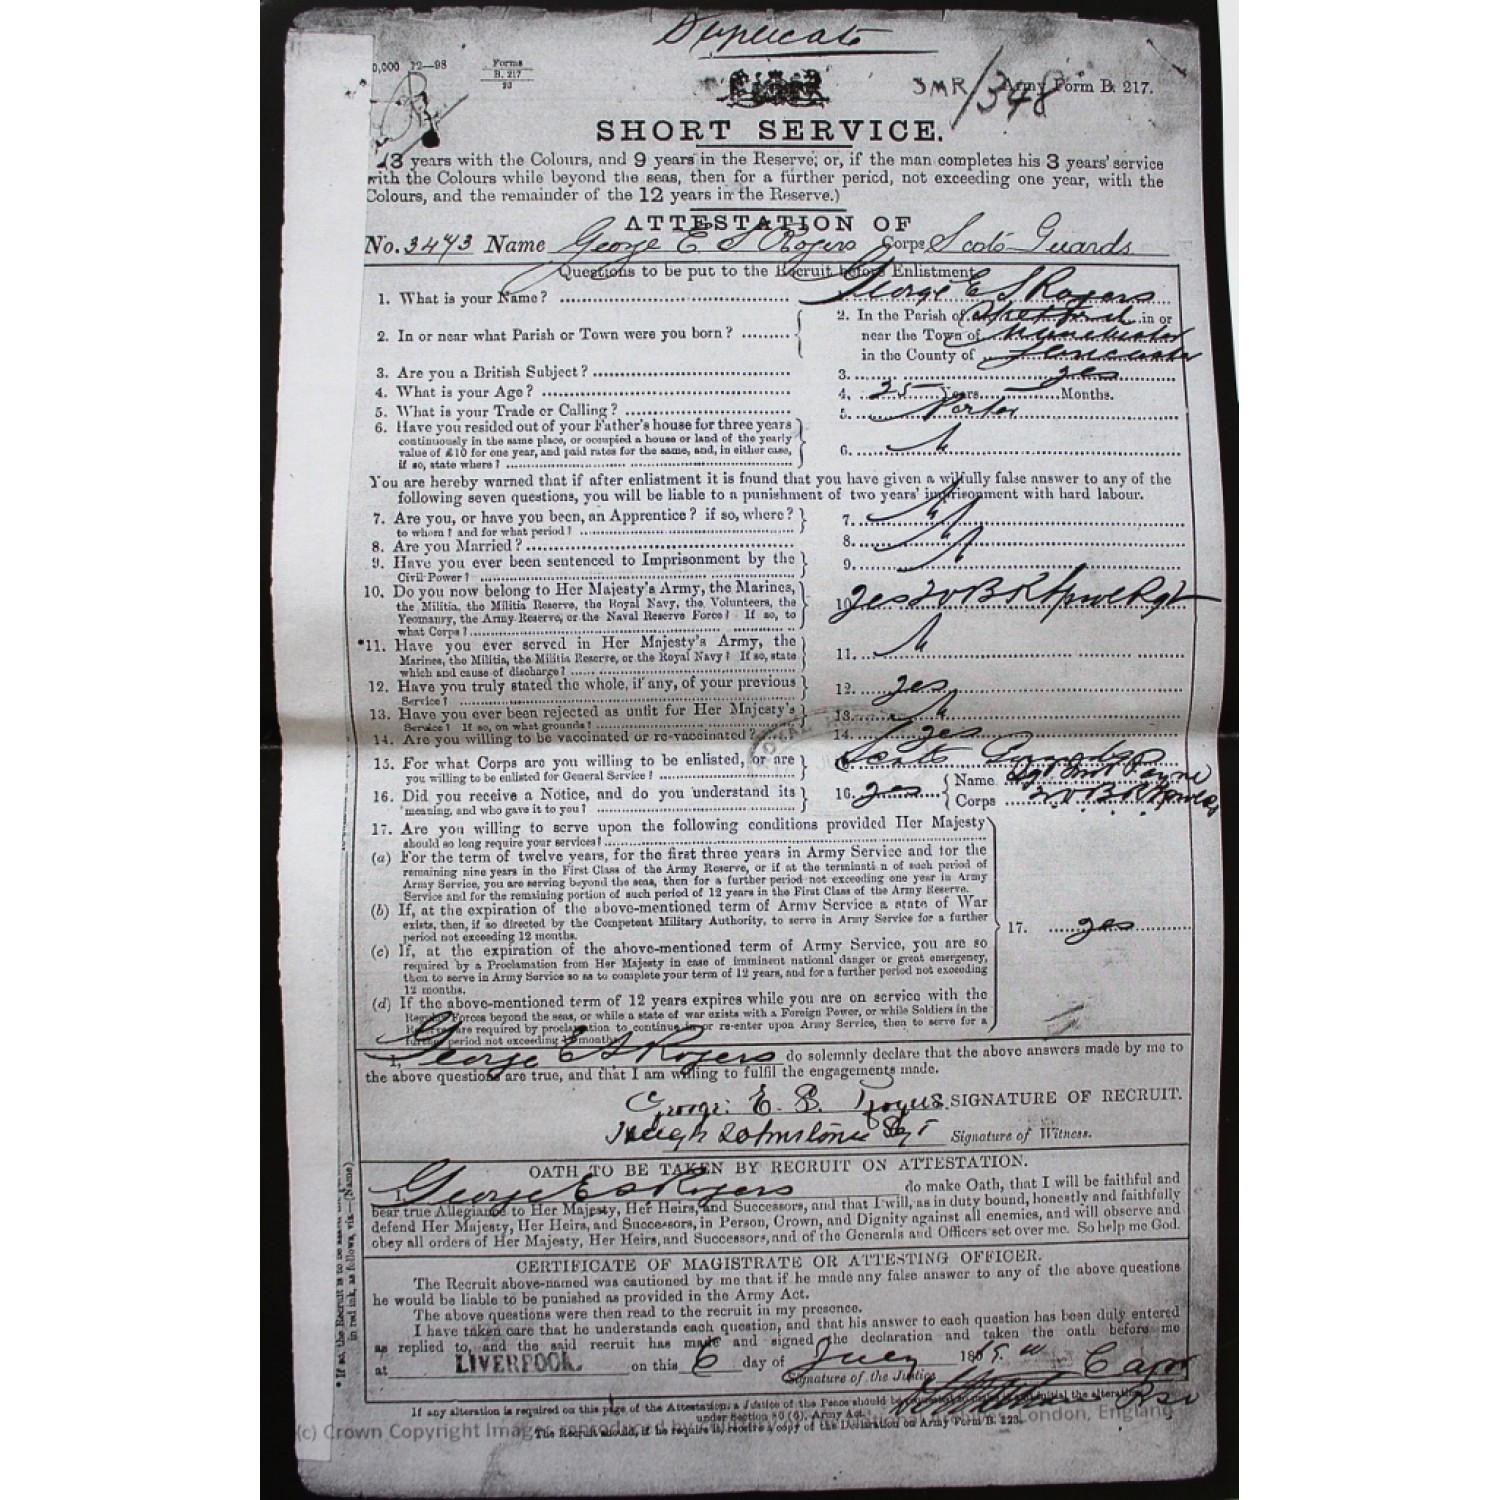 Duplicate
0,000 12—98 Forms B. 217 23
3MR/348 Army Form B. 217.
SHORT SERVICE.
(3 years with the Colours, and 9 years in the Reserve; or, if the man completes his 3 years' service
with the Colours while beyond the seas, then for a further period, not exceeding one year, with the
Colours, and the remainder of the 12 years in the Reserve.)
ATTESTATION OF
No. 3473 Name George E S Rogers Corps Scots Guards
Questions to be put to the Recruit before Enlistment.
1. What is your Name? George E S Rogers
2. In or near what Parish or Town were you born? 2. In the Parish of in or
near the Town of Manchester
in the County of Lancaster
3. Are you a British Subject? 3. yes
4. What is your Age? 4. 25 Years Months.
5. What is your Trade or Calling? 5. Porter
6. Have you resided out of your Father's house for three years
continuously in the same place, or occupied a house or land of the yearly
value of £10 for one year, and paid rates for the same, and, in either case, 6.
if so, state where?
You are hereby warned that if after enlistment it is found that you have given a wilfully false answer to any of the
following seven questions, you will be liable to a punishment of two years' imprisonment with hard labour.
7. Are you, or have you been, an Apprentice? if so, where? 7.
to whom? and for what period?
8. Are you Married? 8.
9. Have you ever been sentenced to Imprisonment by the 9.
Civil Power?
10. Do you now belong to Her Majesty's Army, the Marines, 10. yes
the Militia, the Militia Reserve, the Royal Navy, the Volunteers, the
Yeomanry, the Army Reserve, or the Naval Reserve Force? If so, to
what Corps?
*11. Have you ever served in Her Majesty's Army, the
Marines, the Militia, the Militia Reserve, or the Royal Navy? If so, state 11.
which and cause of discharge?
12. Have you truly stated the whole, if any, of your previous 12. yes
Service?
13. Have you ever been rejected as unfit for Her Majesty's 13.
Service? If so, on what grounds?
14. Are you willing to be vaccinated or re-vaccinated? 14. yes
15. For what Corps are you willing to be enlisted, or are Scots Guards
you willing to be enlisted for General Service?
16. Did you receive a Notice, and do you understand its 16. yes Name Payne
meaning, and who gave it to you? Corps
17. Are you willing to serve upon the following conditions provided Her Majesty
should so long require your services?
(a) For the term of twelve years, for the first three years in Army Service and for the
remaining nine years in the First Class of the Army Reserve, or if at the terminati n of such period of
Army Service, you are serving beyond the seas, then for a further period not exceeding one year in Army
Service and for the remaining portion of such period of 12 years in the First Class of the Army Reserve.
(b) If, at the expiration of the above-mentioned term of Army Service a state of War
exists, then, if so directed by the Competent Military Authority, to serve in Army Service for a further
period not exceeding 12 months. 17. yes
(c) If, at the expiration of the above-mentioned term of Army Service, you are so
required by a Proclamation from Her Majesty in case of imminent national danger or great emergency,
then to serve in Army Service so as to complete your term of 12 years, and for a further period not exceeding
12 months.
(d) If the above-mentioned term of 12 years expires while you are on service with the
Regular Forces beyond the seas, or while a state of war exists with a Foreign Power, or while Soldiers in the
Reserve are required by proclamation to continue in or re-enter upon Army Service, then to serve for a
further period not exceeding 12 months
I, George E S Rogers do solemnly declare that the above answers made by me to
the above questions are true, and that I am willing to fulfil the engagements made.
George E. S. Rogers. SIGNATURE OF RECRUIT.
Hugh Johnstone Sgt Signature of Witness.
OATH TO BE TAKEN BY RECRUIT ON ATTESTATION.
I, George E S Rogers do make Oath, that I will be faithful and
bear true Allegiance to Her Majesty, Her Heirs, and Successors, and that I will, as in duty bound, honestly and faithfully
defend Her Majesty, Her Heirs, and Successors, in Person, Crown, and Dignity against all enemies, and will observe and
obey all orders of Her Majesty, Her Heirs, and Successors, and of the Generals and Officers set over me. So help me God.
CERTIFICATE OF MAGISTRATE OR ATTESTING OFFICER.
The Recruit above-named was cautioned by me that if he made any false answer to any of the above questions
he would be liable to be punished as provided in the Army Act.
The above questions were then read to the recruit in my presence.
I have taken care that he understands each question, and that his answer to each question has been duly entered
as replied to, and the said recruit has made and signed the declaration and taken the oath before me
at LIVERPOOL on this 6 day of July 18
Signature of the Justice
If any alteration is required on this page of the Attestation, a Justice of the Peace should be requested to make it and initial the alteration
under Section 80 (6), Army Act.
The Recruit should, if he require it, receive a copy of the Declaration on Army Form B. 223.
(c) Crown Copyright Image reproduced by courtesy of The National Archives, London, England
* If so, the Recruit is to be asked
in red ink, as follows, viz.—(Name)